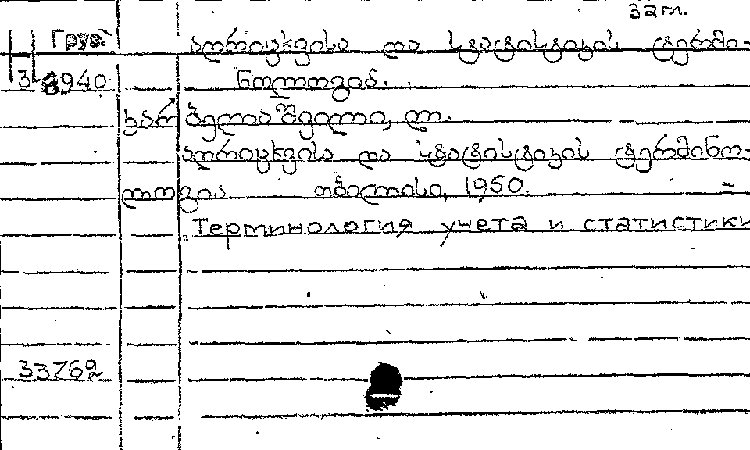 32 m.
Груз. აღრიცხვისა და სტატისტიკის ტერმი-
3 8940 ნოლოგია.
ბელიაშვილი, ლ.
აღრიცხვისა და სტატისტიკის ტერმინო-
ლოგია თბილისი, 1950. –
Терминология учета и статистики
33762